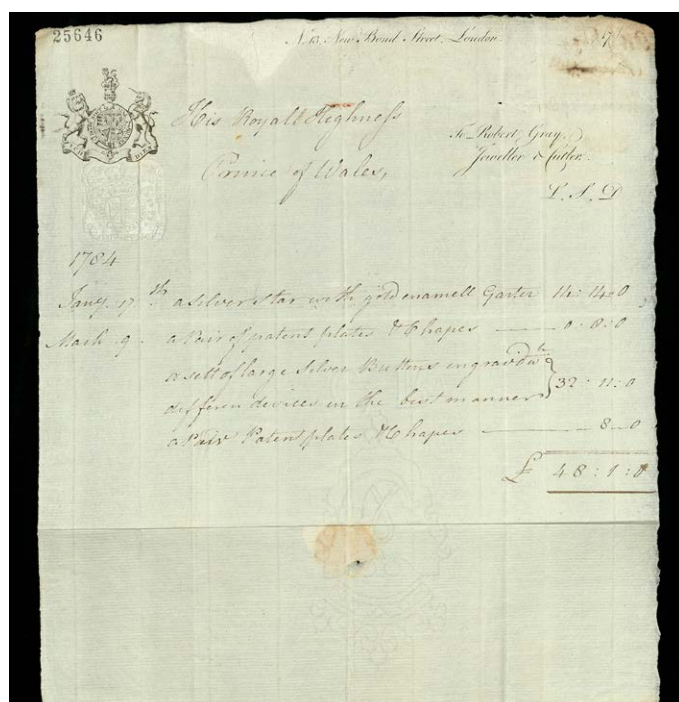 25646
No. 13, New Bond Street, London 17
His Royall Highness
Prince of Wales,
To Robert Gray,
Jeweller & Cutler.
L. S. D
1784
Jany. 17th a silver star with gold enamell Garter 14: 14: 0
March 9. a Pair of patent plates & Chapes — 0: 8: 0
a sett of large silver Buttons engrav'd wth
differen devices in the best manner } 32: 11: 0
a Pair Patent plates & Chapes — 8 — 0
£ 48: 1: 0